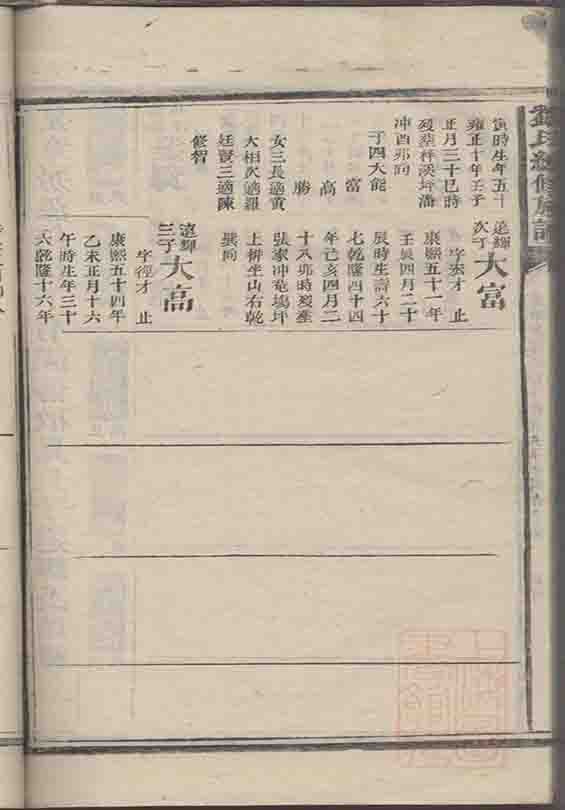 氏續修族譜
寅時生年五十
雍正十年壬子
正月三十巳時
歿葬梓溪坪潘
冲酉卯向
子四大能
富
高
勝
女三長適黃
大相次適羅
廷賢三適陳
修智
遠輝
次子
大富
字宏才 止
康熙五十一年
壬辰四月二十
辰時生壽六十
七乾隆四十四
年己亥四月二
十八卯時歿葬
張家冲竜塲坪
上排坐山右乾
巽向
遠輝
三子
大高
字徑才 止
康熙五十四年
乙未正月十六
午時生年三十
六乾隆十六年